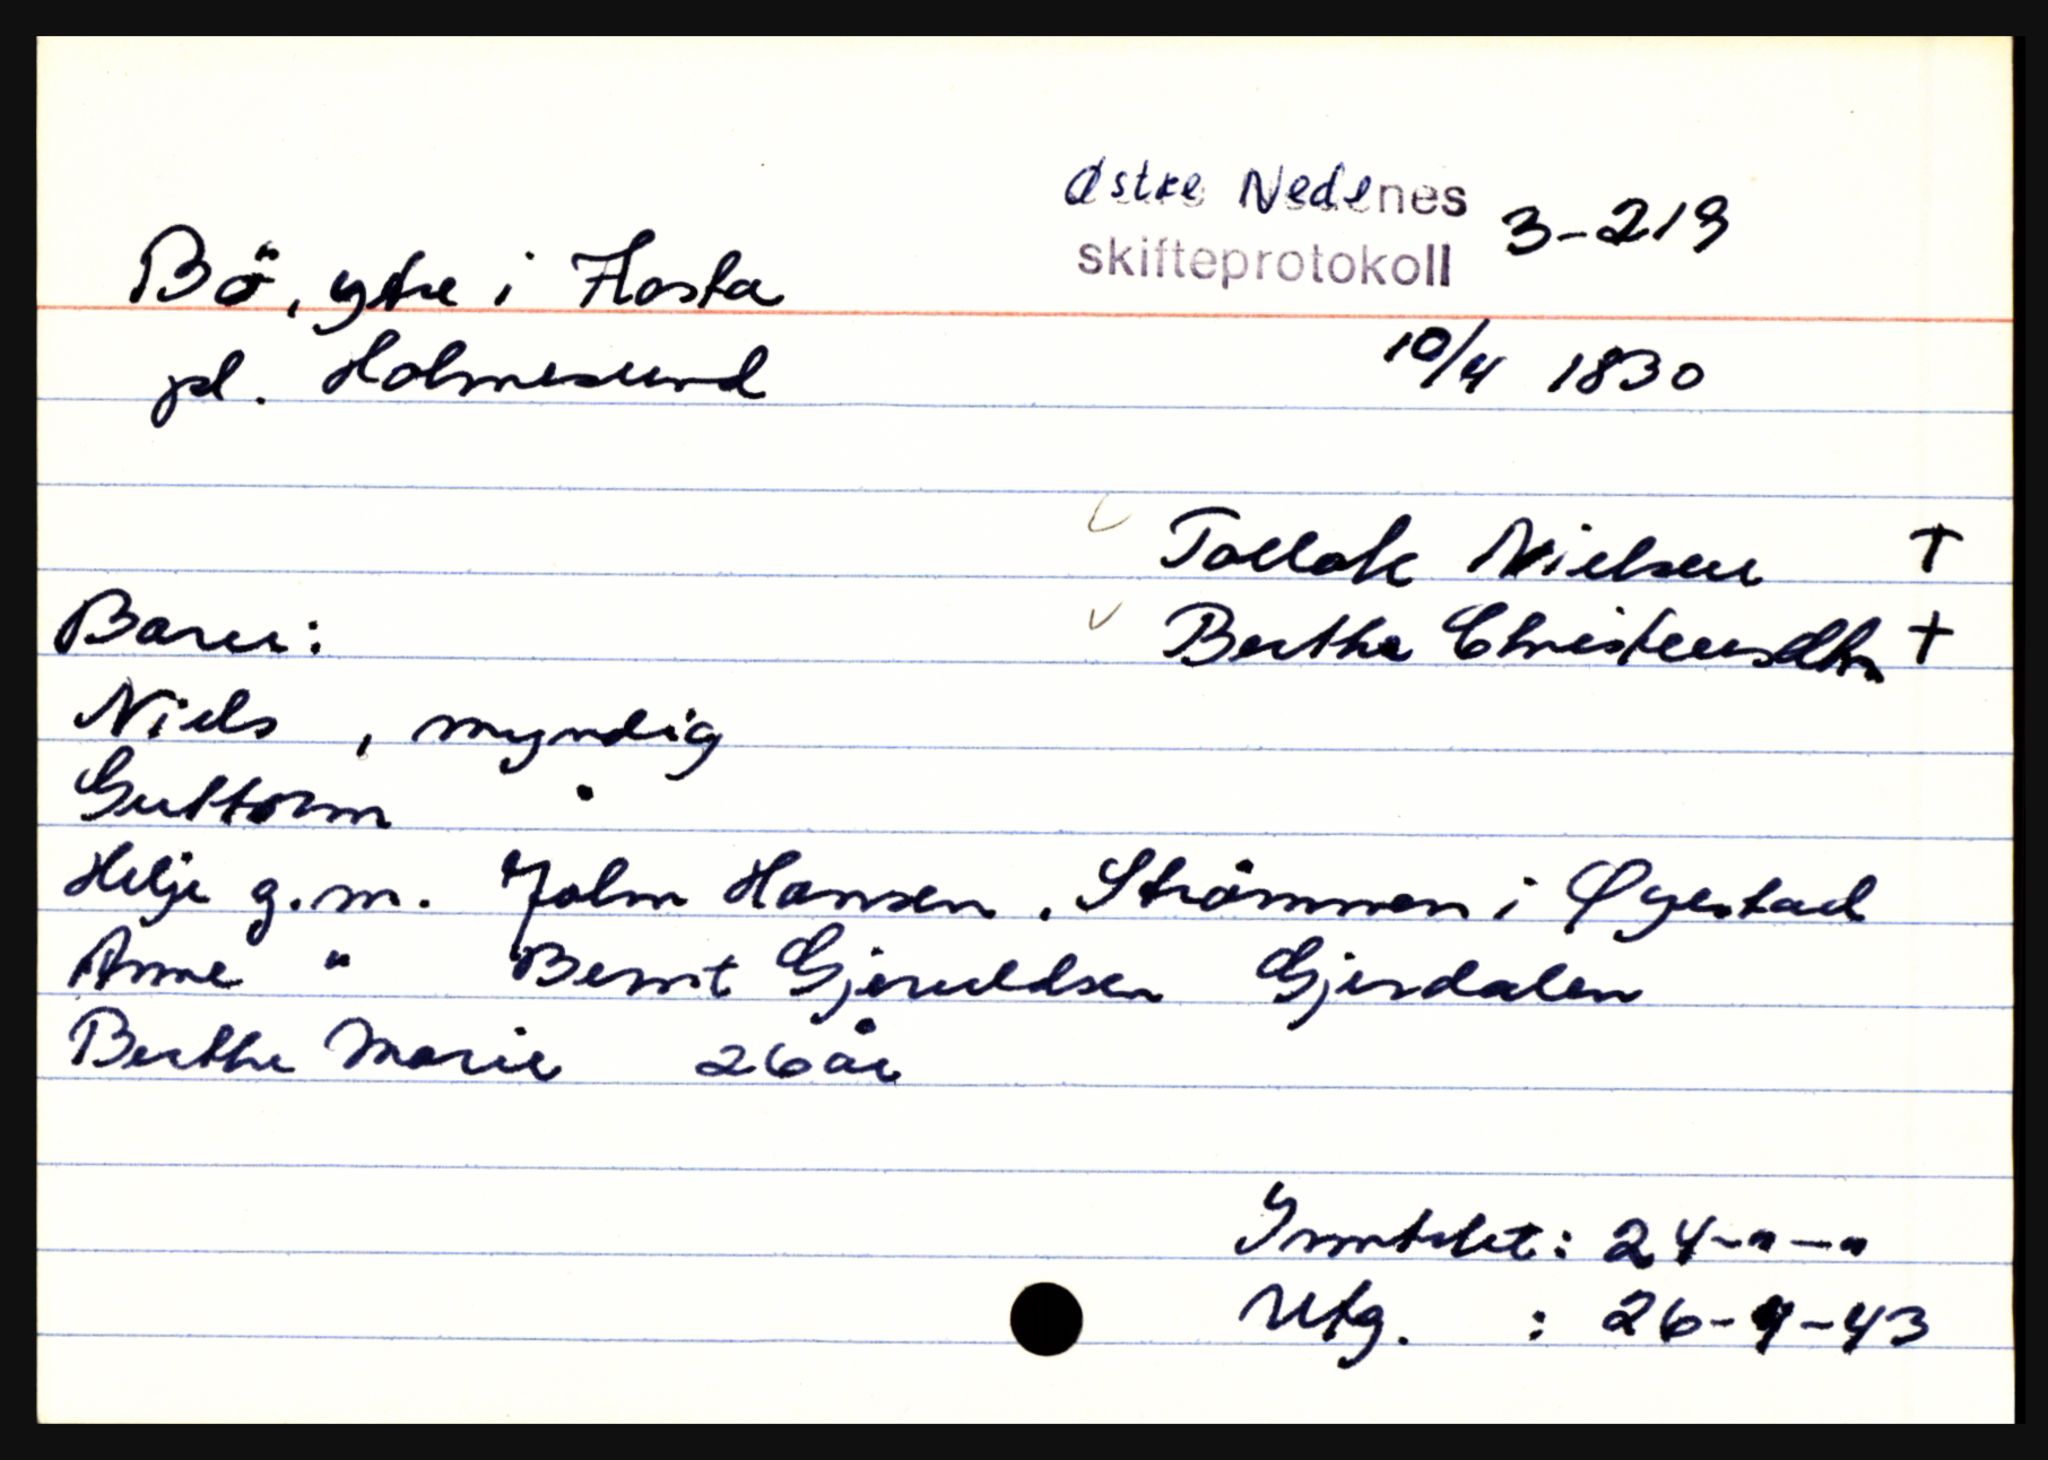 Østre Nedenes 3-219
skifteprotokoll
Bö, ytre i Flosta
pl. Holmesund
10/4 1830
Tollak Nielsen †
Barn:
Berthe Christensdtr †
Niels , myndig
Guttorm "
Helje g.m. John Hansen. Strömmen i Øyestad
Anne " Bernt Gjeruldsen Gjerdalen
Berthe Marie 26 år
Inntekt: 24-"-"
Utg. : 26-4-43